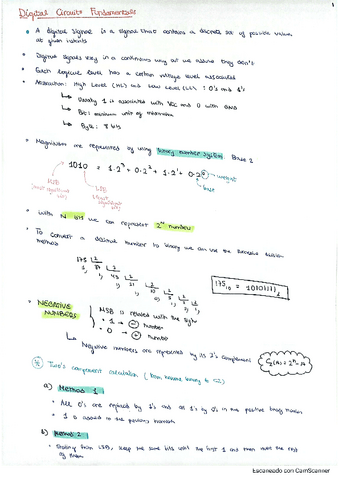 1
Digital Circuits Fundamentals
A digital signal is a signal that contains a discrete set of possible values
at given instants
Digital signals vary in a continuous way but we assume they don't
Each logical level has a certain voltage level associated
Abstraction: High Level (HL) and Low Level (LL) : 0's and 1's
Usually 1 is associated with Vcc and 0 with GND
Bit: minimum unit of information
Byte: 8 bits
Magnitudes are represented by using binary number system Base 2
1010 = 1·2³ + 0·2² + 1·2¹ + 0·2⁰ → exponent
base
MSB LSB
(most significant bit) (least significant bit)
With N bit we can represent 2ᴺ numbers
To convert a decimal number to binary we can use the division
method
175 2
1 87 2
1 43 2
1 21 2
1 10 2
0 5 2
1 2 2
0 1
175₁₀ = 10101111₂
NEGATIVE NUMBERS
MSB is related with the sign
1 → - number
0 → + number
Negative numbers are represented by its 2's complement
C₂(A) = 2ⁿ - A
Two's complement calculation (from natural binary to C2)
a) Method 1
All 0's are replaced by 1's and all 1's by 0's in the positive binary number
1 is added to the previous number
b) Method 2
Starting from LSB, keep the same bits until the first 1 and then invert the rest
of them
Escaneado con CamScanner